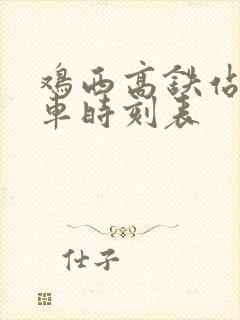 鸡西高铁站
车时刻表
仕子